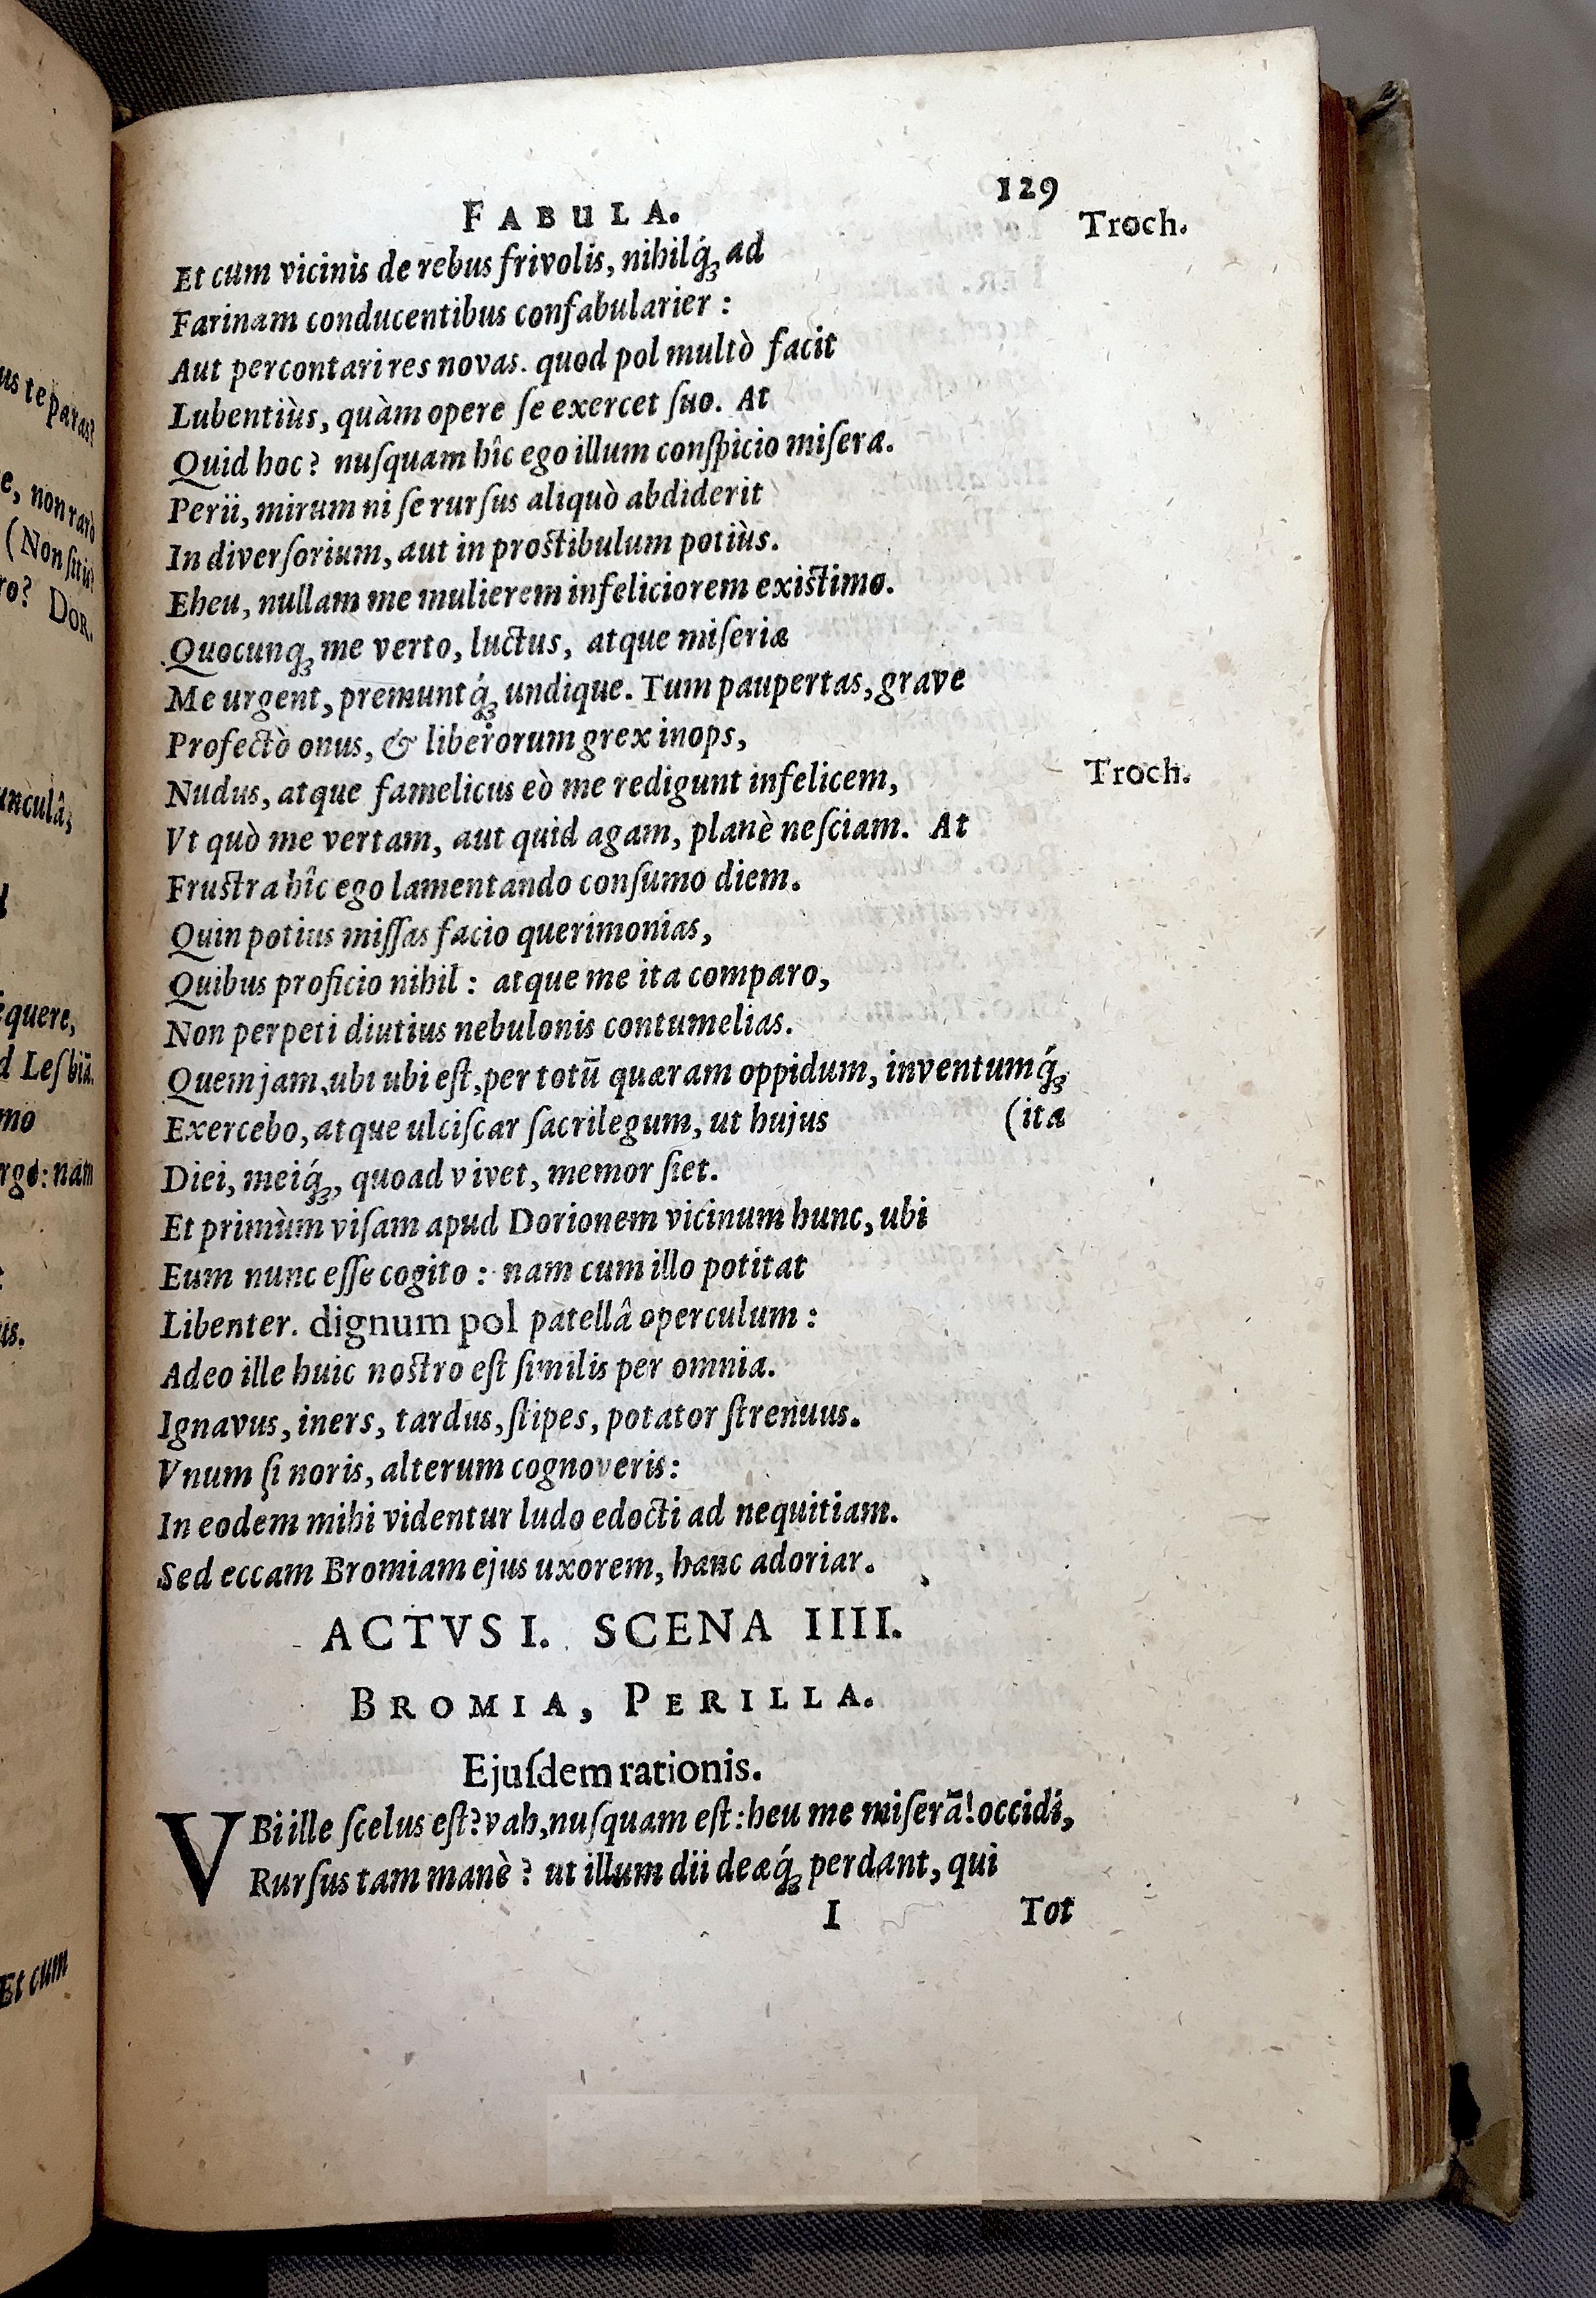 129
FABULA.
Troch.
Et cum vicinis de rebus frivolis, nihilq́ꝫ ad
Farinam conducentibus confabularier :
Aut percontari res novas. quod pol multò facit
Lubentiùs, quàm opere ſe exercet ſuo. At
Quid hoc ? nuſquam hîc ego illum conſpicio miſera.
Perii, mirum ni ſe rurſus aliquò abdiderit
In diverſorium, aut in proſtibulum potiùs.
Eheu, nullam me mulierem infeliciorem exiſtimo.
Quocunqꝫ me verto, luctus, atque miſeriæ
Me urgent, premuntq́ꝫ undique. Tum paupertas, grave
Profectò onus, & liberorum grex inops,
Nudus, atque famelicus eò me redigunt infelicem,
Troch.
Vt quò me vertam, aut quid agam, planè neſciam. At
Fruſtra hîc ego lamentando conſumo diem.
Quin potius miſſas facio querimonias,
Quibus proficio nihil : atque me ita comparo,
Non perpeti diutius nebulonis contumelias.
Quem jam, ubi ubi eſt, per totū quæram oppidum, inventumq́ꝫ
Exercebo, atque ulciſcar ſacrilegum, ut hujus (ita
Diei, meiq́ꝫ, quoad vivet, memor ſiet.
Et primùm viſam apud Dorionem vicinum hunc, ubi
Eum nunc eſſe cogito : nam cum illo potitat
Libenter. dignum pol patellâ operculum :
Adeo ille huic noſtro eſt ſimilis per omnia.
Ignavus, iners, tardus, ſtipes, potator ſtrenuus.
Vnum ſi noris, alterum cognoveris :
In eodem mihi videntur ludo edocti ad nequitiam.
Sed eccam Bromiam ejus uxorem, hanc adoriar.
ACTVS I. SCENA IIII.
BROMIA, PERILLA.
Ejuſdem rationis.
VBi ille ſcelus eſt? vah, nuſquam eſt : heu me miſerā! occidi,
Rurſus tam manè ? ut illum dii deæq́ꝫ perdant, qui
I Tot
us te paras?
e, non rarò
(Non ſitis?
ro? DOR.
unculâ,
equere,
d Leſbiā.
mo
rgo: nam
us.
Et cum